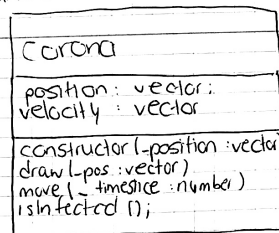 corona
position : vector;
velocity : vector
constructor (_position : vector
draw (_pos : vector)
move (_timeslice : number)
isInfected ();